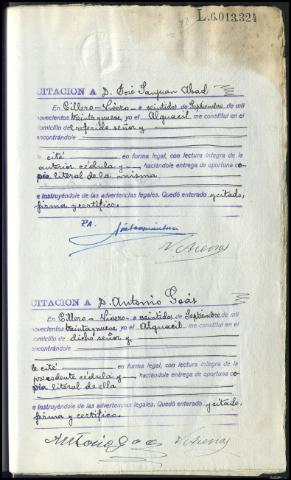 L.6.013.324
CITACION A D. José Sanjuan Abad
En Cillero-Vivero- a veintidos de Septiembre de mil
novecientos treintaynueve, yo el Alguacil me constituí en el
domicilio del referido señor y
encontrándole
le cité en forma legal, con lectura íntegra de la
anterior cédula y haciéndole entrega de oportuna co
pia literal de la misma.
e instruyéndole de las advertencias legales. Quedó enterado y citado,
firma y certifico.
P.A.
V. Arenas
CITACION A D. Antonio Goás
En Cillero- Vivero- a veintidos de Septiembre de mil
novecientos treintaynueve, yo el Alguacil me constituí en el
domicilio de dicho señor y
encontrándole
le cité en forma legal, con lectura íntegra de la
precedente cédula y haciéndole entrega de oportuna co
pia literal de ella
e instruyéndole de las advertencias legales. Quedó enterado y citado,
firma y certifico.
Antonio goas V. Arenas